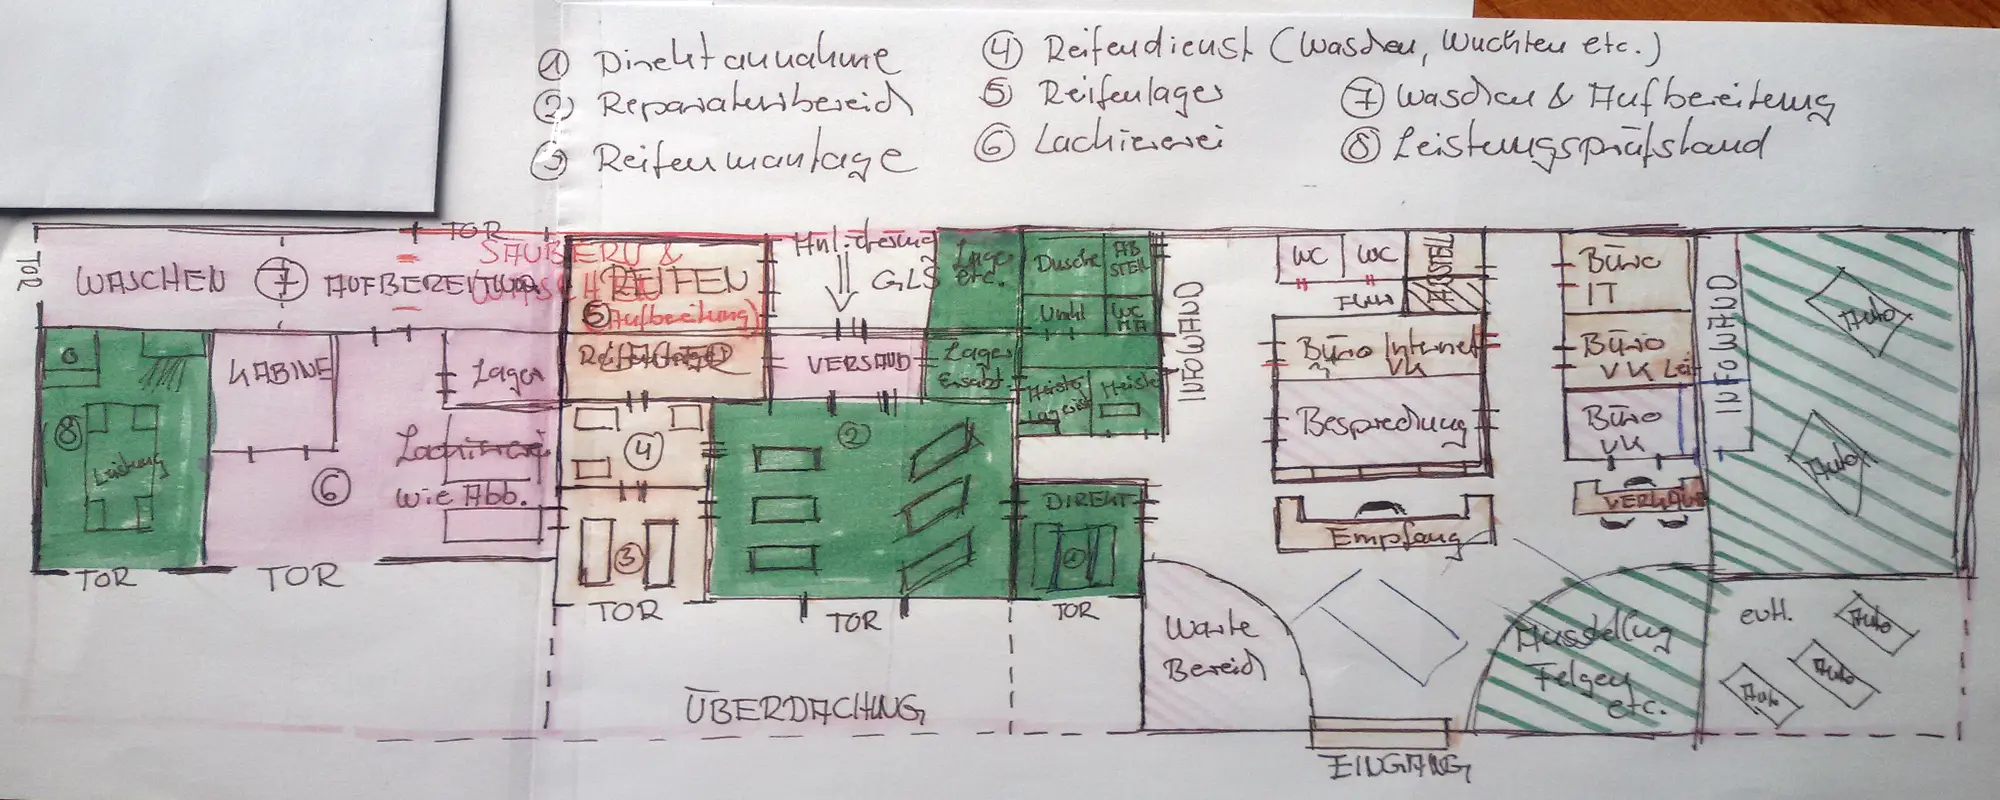 ① Direktannahme
② Reparaturbereich
③ Reifenmontage
④ Reifendienst (Waschen, Wuchten etc.)
⑤ Reifenlager
⑥ Lackiererei
⑦ Waschen & Aufbereitung
⑧ Leistungsprüfstand
TOR
TOR
WASCHEN ⑦ AUFBEREITUNG
SAUBER &
REIFEN
⑤ Aufbereitung)
Anlieferung
GLS
Lager
etc.
Dusche
AB
STELL
Umkl
WC
MA
INFOWAND
WC
WC
ABSTELL
Flur
Büro
IT
INFOWAND
Auto
KABINE
Lager
VERSAND
Lager
Ersatzt.
Meister
Lagerist
Meister
Büro Internet
VK
Büro
VK Leit
Besprechung
Büro
VK
Auto
⑧
Leistung
⑥
Lackiererei
wie Abb.
④
②
③
DIREKT
①
Empfang
VERKAUF
TOR
TOR
TOR
TOR
TOR
Warte
Bereich
Ausstellug
Felgen
etc.
evtl.
Auto
Auto
Auto
ÜBERDACHUNG
EINGANG